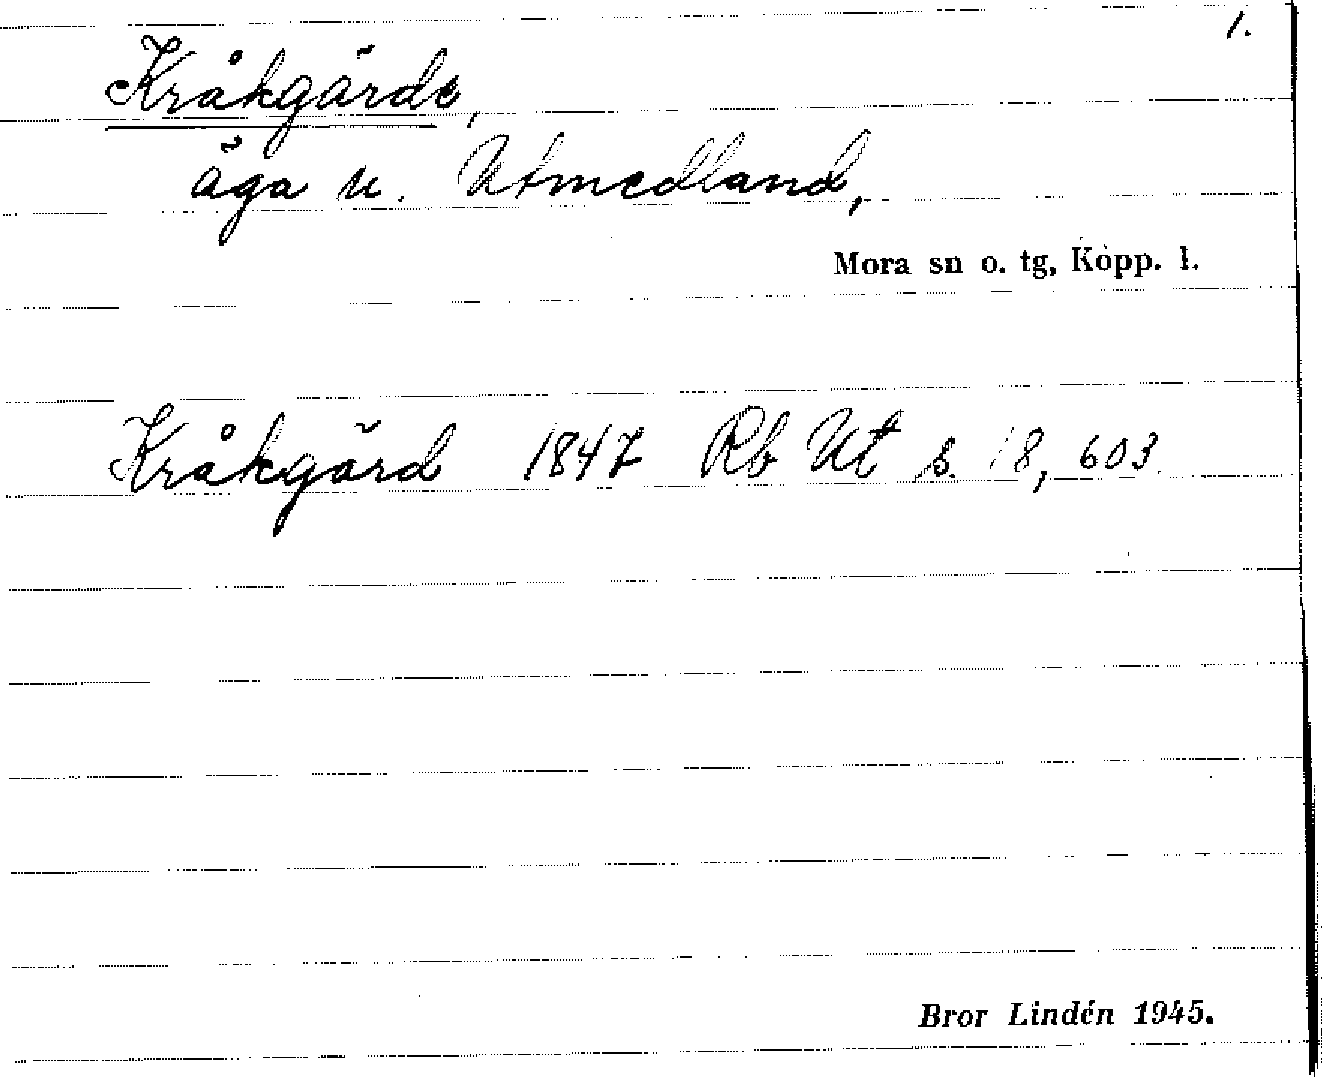 1.
Kråkgärde,
äga u. Utmedland,
Mora sn o. tg, Kopp. l.
Kråkgärd 1847 Rb Ut s. 18, 603.
Bror Lindén 1945.